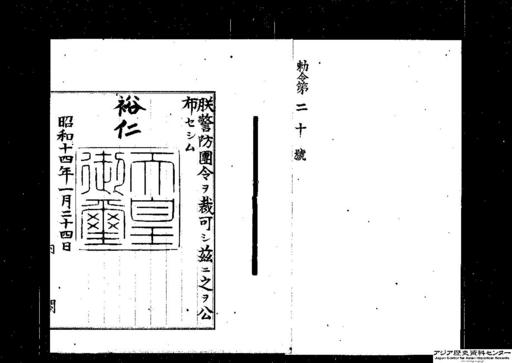 勅令第二十號
朕警防團令ヲ裁可シ茲ニ之ヲ公
布セシム
裕仁
天皇御璽
昭和十四年一月二十四日
内閣
アジア歴史資料センター
Japan Center for Asian Historical Records